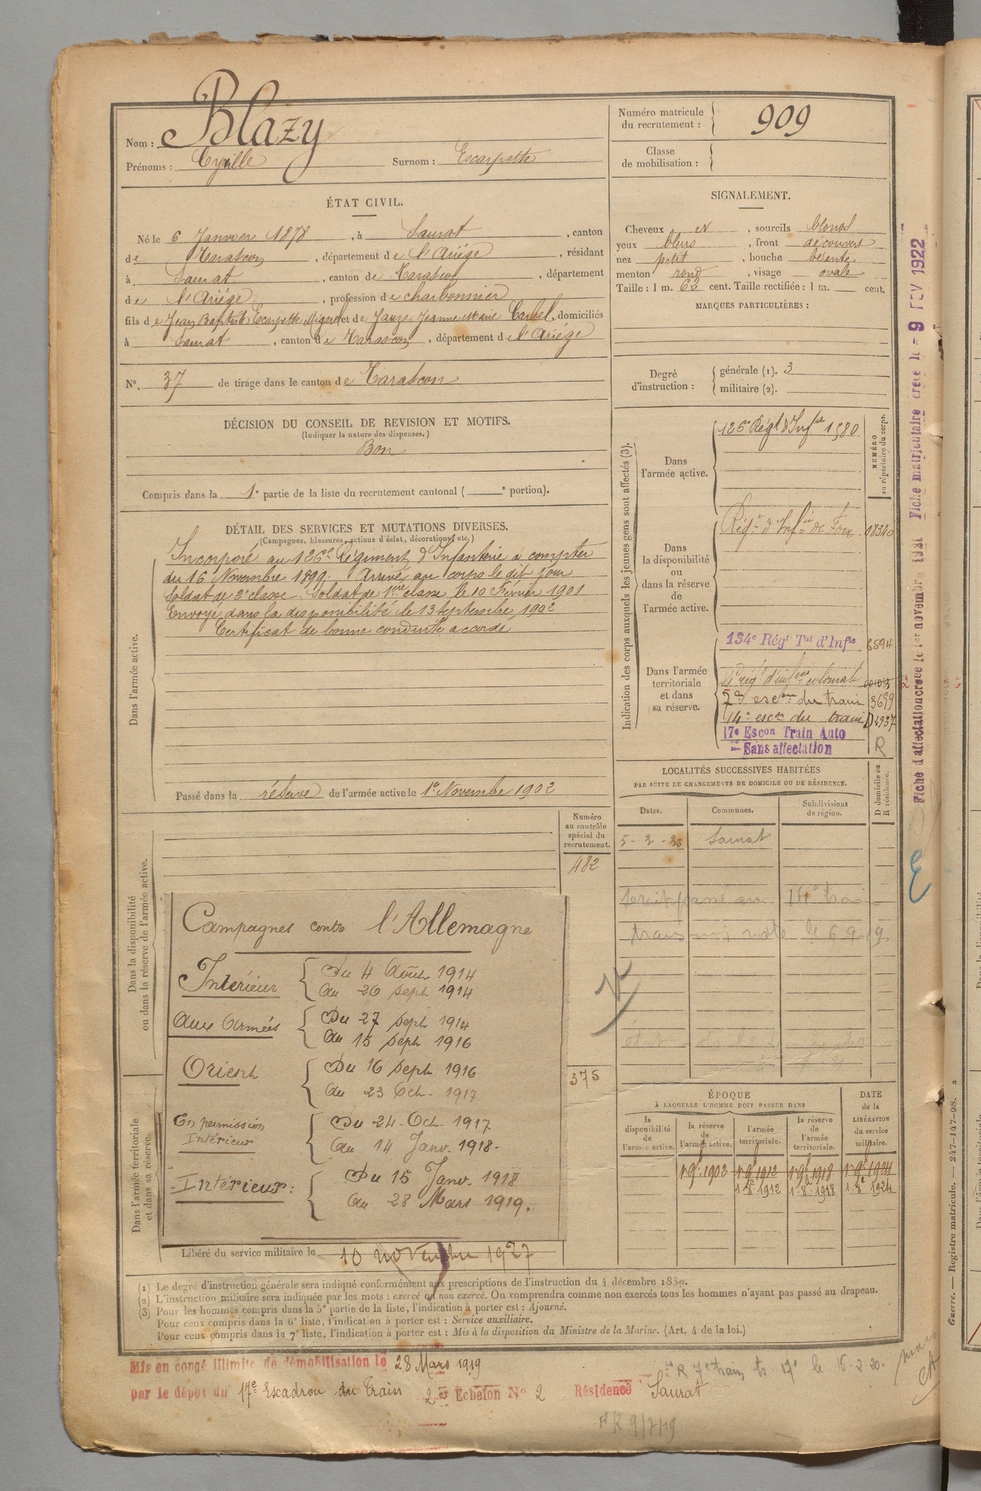 Nom : Blazy
Prénoms : Cyrille Surnom : Escarpette
Numéro matricule du recrutement : 909
Classe de mobilisation :
ÉTAT CIVIL.
Né le 6 Janvier 1878, à Saurat, canton
de Tarascon, département de l'Ariége, résidant
à Saurat, canton de Tarascon, département
de l'Ariége, profession de charbonnier
fils de Jean Baptiste Escarpette et de Jauze Jeanne Marie, domiciliés
à Saurat, canton de Tarascon, département de l'Ariége
N°. 37 de tirage dans le canton de Tarascon
SIGNALEMENT.
Cheveux N, sourcils blonds
yeux bleus, front découvert
nez petit, bouche
menton rond, visage ovale
Taille : 1 m. 62 cent. Taille rectifiée : 1 m. cent.
MARQUES PARTICULIÈRES :
Degré d'instruction : générale (1). 3
militaire (2).
DÉCISION DU CONSEIL DE REVISION ET MOTIFS.
(Indiquer la nature des dispenses.)
Bon
Compris dans la 1e partie de la liste du recrutement cantonal ( e portion).
DÉTAIL DES SERVICES ET MUTATIONS DIVERSES.
(Campagnes, blessures, actions d'éclat, décorations, etc.)
Dans l'armée active.
Incorporé au 126e Régiment d'Infanterie à compter
du 16 Novembre 1899. Arrivé au corps le dit jour
soldat de 2e classe. Soldat de 1ère classe le 10 Février 1901
Envoyé dans la disponibilité le 13 septembre 1902
Certificat de bonne conduite accordé
Passé dans la réserve de l'armée active le 1er Novembre 1902
Indication des corps auxquels les jeunes gens sont affectés (3).
NUMÉRO au répertoire du corps.
Dans l'armée active.
126e Régt d'Infrie 1580
Dans la disponibilité ou dans la réserve de l'armée active.
Régt d'Infie de Foix
Dans l'armée territoriale et dans sa réserve.
134e Régt Tal d'Infie 6594
colonial
du train 3699
14e escon du train
17e Escon Train Auto
Sans affectation R
Fiche d'affectation créée le 1er novembre 1931
Fiche matriculaire créée le - 9 FEV 1922
LOCALITÉS SUCCESSIVES HABITÉES
PAR SUITE DE CHANGEMENTS DE DOMICILE OU DE RÉSIDENCE.
Dates. Communes. Subdivisions de région. D domicile ou R résidence.
Saurat
Numéro au contrôle spécial du recrutement.
482
375
Dans la disponibilité ou dans la réserve de l'armée active.
Dans l'armée territoriale et dans sa réserve.
Campagnes contre l'Allemagne
Intérieur Du 4 Août 1914
Au 26 Sept 1914
Aux Armées Du 27 Sept 1914
Au 15 Sept 1916
Orient Du 16 Sept 1916
Au 23 Oct. 1917
En permission Intérieur Du 24 Oct. 1917
Au 14 Janv. 1918
Intérieur : Du 15 Janv. 1918
Au 28 Mars 1919.
Libéré du service militaire le 10 novembre 1927
ÉPOQUE
À LAQUELLE L'HOMME DOIT PASSER DANS
la disponibilité de l'armée active.
la réserve de l'armée active.
l'armée territoriale.
la réserve de l'armée territoriale.
DATE de la LIBÉRATION du service militaire.
1er 9bre 1902 1er 9bre 1912 1er 9bre 1918 1er 9bre 1924
1-8e 1912 1-8e 1918 1-8e 1924
(1) Le degré d'instruction générale sera indiqué conformément aux prescriptions de l'instruction du 4 décembre 1889.
(2) L'instruction militaire sera indiquée par les mots : exercé ou non exercé. On comprendra comme non exercés tous les hommes n'ayant pas passé au drapeau.
(3) Pour les hommes compris dans la 5e partie de la liste, l'indication à porter est : Ajourné.
Pour ceux compris dans la 6e liste, l'indication à porter est : Service auxiliaire.
Pour ceux compris dans la 7e liste, l'indication à porter est : Mis à la disposition du Ministre de la Marine. (Art. 4 de la loi.)
Mis en congé illimité de démobilisation le 28 Mars 1919
par le dépôt du 17e Escadron du Train 2e Echelon N° 2 Résidence Saurat
Guerre. — Registre matricule. — 247-147-98.